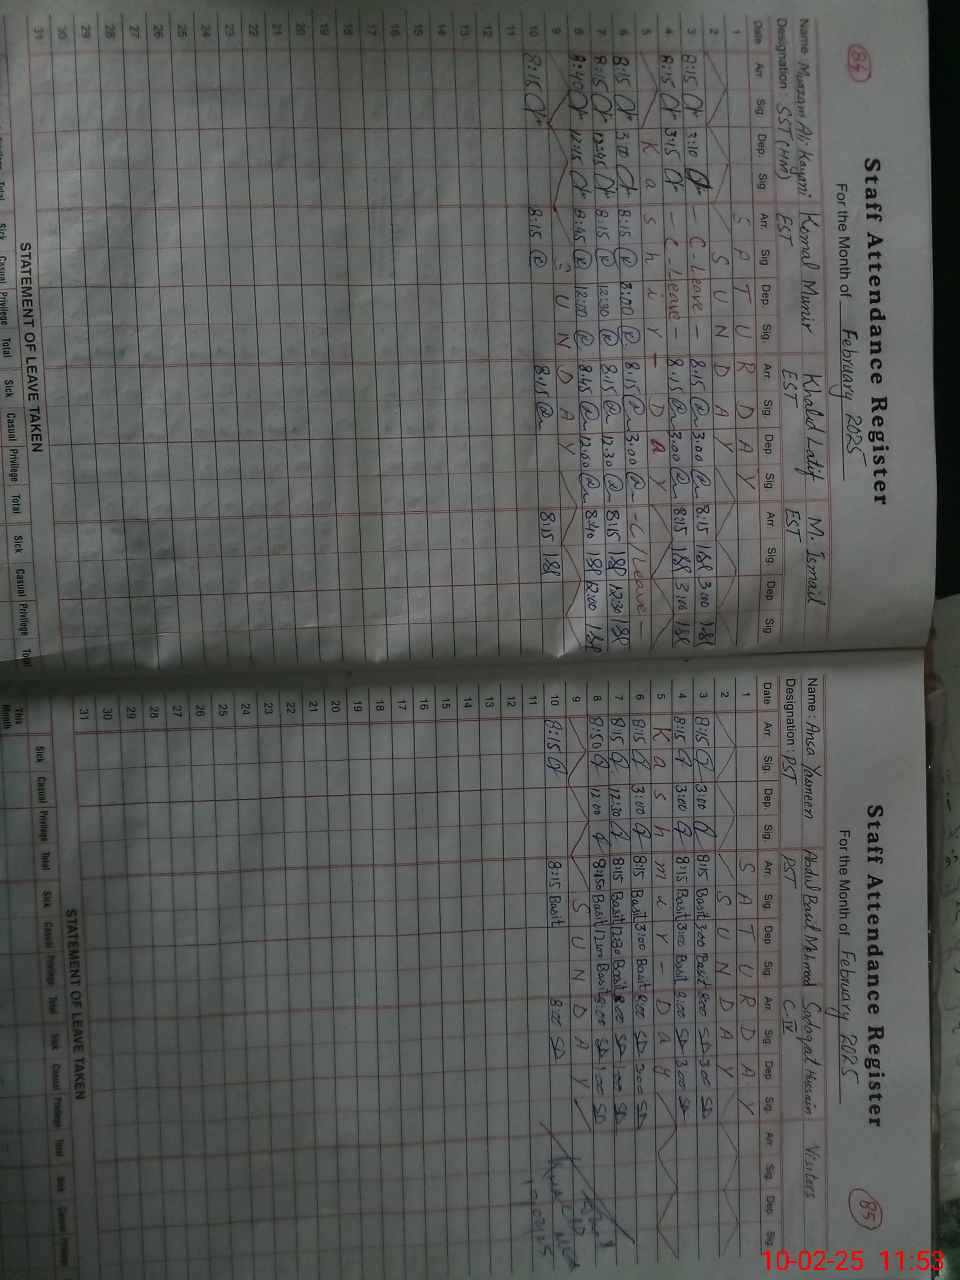 84
Staff Attendance Register
For the Month of February 2025
Name: Muazam Ali Kayani Komal Munir Khalid Latif M. Ismail
Designation: SST (HM) EST EST EST
Date Arr. Sig. Dep. Sig. Arr. Sig. Dep. Sig. Arr. Sig. Dep. Sig. Arr. Sig. Dep. Sig.
1 S A T U R D A Y
2 S U N D A Y
3 8:15 3:10 - C - Leave - 8:15 3:00 8:15 3:00
4 8:15 3:15 - C - Leave - 8:15 3:00 8:15 3:00
5 K a s h i r - D a y
6 8:15 3:00 8:15 3:00 8:15 3:00 - C/Leave -
7 8:15 12:45 8:15 12:30 8:15 12:30 8:15 12:30
8 8:40 12:15 8:45 12:00 8:45 12:00 8:40 12:00
9 S U N D A Y
10 8:15 8:15 8:15 8:15
11
12
13
14
15
16
17
18
19
20
21
22
23
24
25
26
27
28
29
30
31
STATEMENT OF LEAVE TAKEN
Sick Casual Privilege Total Sick Casual Privilege Total Sick Casual Privilege Total
85
Staff Attendance Register
For the Month of February 2025
Name: Ansa Yasmeen Abdul Basit Mehmood Sadaqat Hussain Visiters
Designation: PST PST C.IV
Date Arr. Sig. Dep. Sig. Arr. Sig. Dep. Sig. Arr. Sig. Dep. Sig. Arr. Sig. Dep. Sig.
1 S A T U R D A Y
2 S U N D A Y
3 8:15 3:00 8:15 Basit 3:00 Basit 8:00 SD 3:00 SD
4 8:15 3:00 8:15 Basit 3:00 Basit 8:00 SD 3:00 SD
5 K a s h m i r - D a y
6 8:15 3:00 8:15 Basit 3:00 Basit 8:00 SD 3:00 SD
7 8:15 12:30 8:15 Basit 12:30 Basit 8:00 SD 1:00 SD
8 8:50 12:00 8:50 Basit 12:00 Basit 8:00 SD 1:00 SD
9 S U N D A Y
10 8:15 8:15 Basit 8:00 SD
11
12
13
14
15
16
17
18
19
20
21
22
23
24
25
26
27
28
29
30
31
STATEMENT OF LEAVE TAKEN
This Month Sick Casual Privilege Total Sick Casual Privilege Total Sick Casual Privilege Total Sick Casual Privilege
10-02-25 11:53